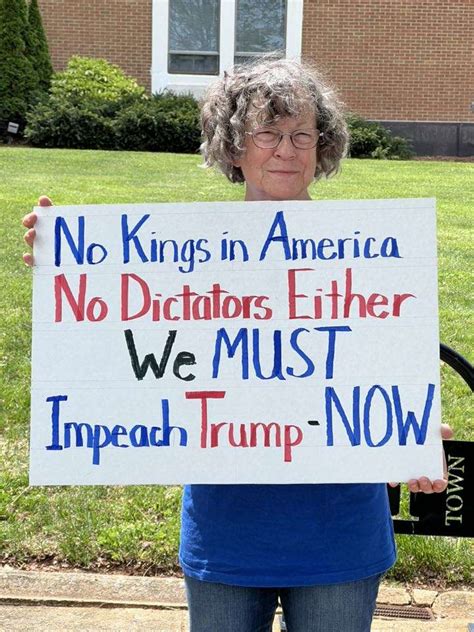 No Kings in America
No Dictators Either
We MUST
Impeach Trump - NOW
TOWN